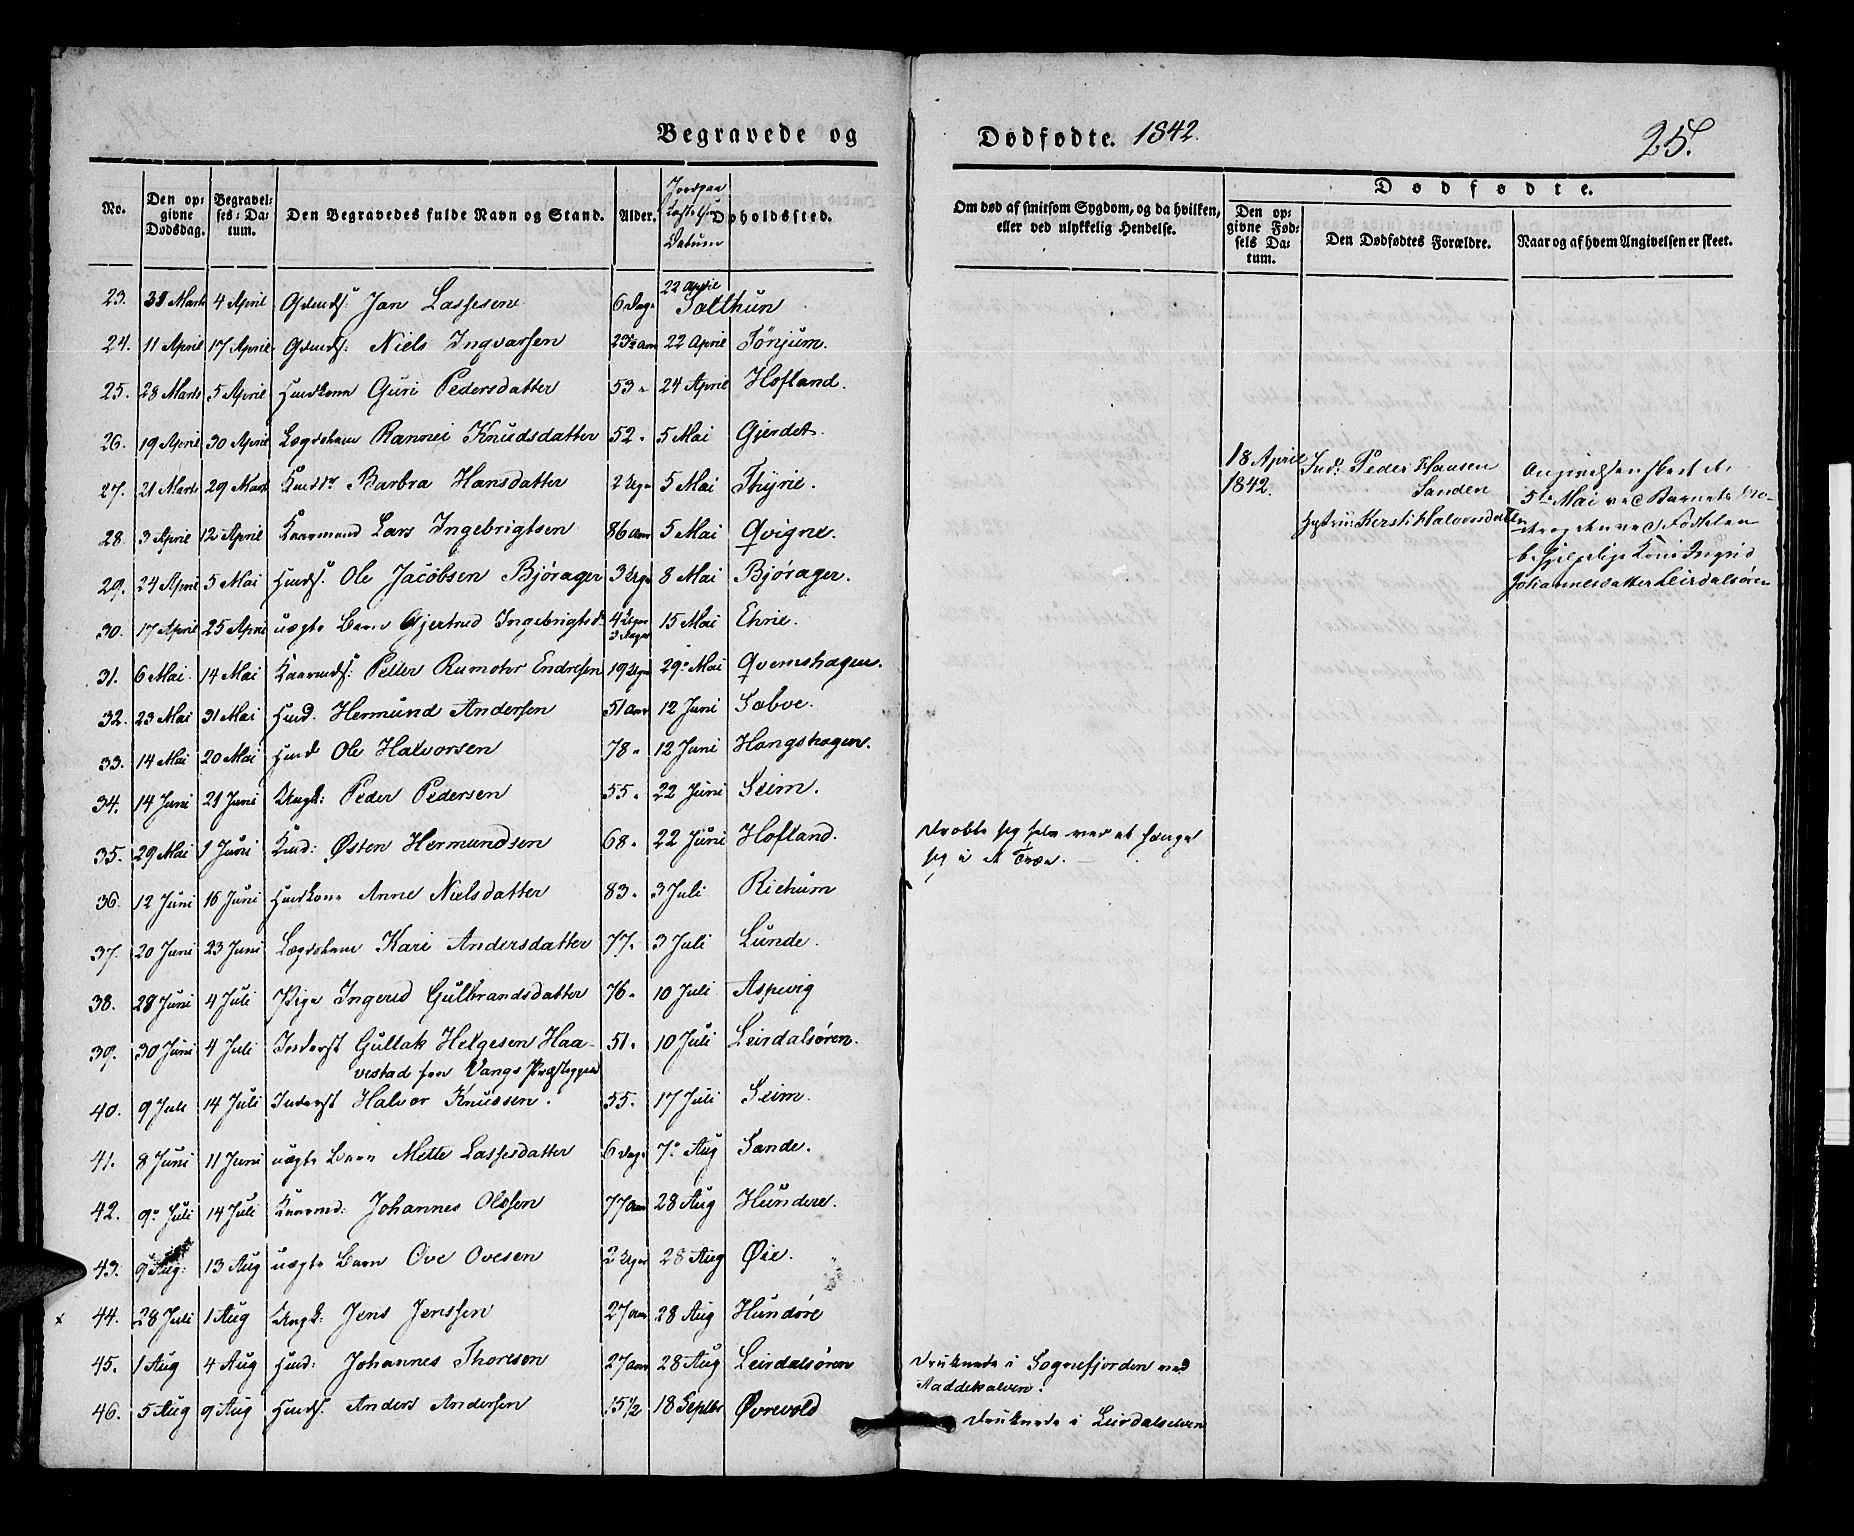 Begravede og Dødfødte. 1842. 25.
No. Den opgivne Dødsdag. Begravelses-Datum. Den Begravedes fulde Navn og Stand. Alder. Jordpaakastelses Datum Opholdssted. Om død af smitsom Sygdom, og da hvilken, eller ved ulykkelig Hendelse.
Dødfødte.
Den opgivne Fødsels Datum. Den Dødfødtes Forældre. Naar og af hvem Angivelsen er skeet.
23. 31 Marts 4 April Gdmds: Jan Lassesen 6 Dage 22 April Solthun
24. 11 April 17 April Gdmds: Niels Ingvarsen 23½ Aar 22 April Tönjum.
25. 28 Marts 5 April Husdkone Guri Pedersdatter 53" 24 April Hofland.
26. 19 April 30 April Lægdslem Rannei Knudsdatter 52" 5 Mai Gjerdet.
27. 21 Marts 29 Marts Barbra Hansdatter 2 Uger 5 Mai Thyrie.
28. 3 April 12 April Kaarmand Lars Ingebrigtsen 86 Aar 5 Mai Qvigne.
29. 24 April 5 Mai Husds. Ole Jacobsen Bjørager 3 Uger 8 Mai Bjørager.
30. 17 April 25 April uægte Barn Gjertrud Ingebrigtsd. 4 Uger 3 Dage 15 Mai Ehrie.
31. 6 Mai 14 Mai Kaarmds: Petter Rumohr Endresen 19 Uger 29 Mai Qvemshagen.
32. 23 Mai 31 Mai Husd. Hermund Andersen 51 Aar 12 Juni Sæbøe.
33. 14 Mai 20 Mai Husd Ole Halvorsen 78" 12 Juni Hangshagen.
34. 14 Juni 21 Juni Ungk: Peder Pedersen 55" 22 Juni Seim.
35. 29 Mai 1 Juni Østen Hermundsen 68" 22 Juni Hofland. Dræbte sig selv ved at hænge
sig i et Træe.
36. 12 Juni 16 Juni Husdkone Anne Nielsdatter 83" 3 Juli Richum
37. 20 Juni 23 Juni Lægdslem Kari Andersdatter 77" 3 Juli Lunde.
38. 28 Juni 4 Juli Pige Ingerid Gulbrandsdatter 76" 10 Juli Aspevig
39. 30 Juni 4 Juli Inderst Gullak Helgesen Haa-
vestad fra Vangs Præstegjeld 51" 10 Juli Leirdalsøren.
40. 9 Juli 14 Juli Inderst Halvor Knudsen. 55. 17 Juli Seim.
41. 8 Juni 11 Juni uægte Barn Mette Lassesdatter 6 Dage 7 Aug Sande.
42. 9 Juli 14 Juli Kaarmd: Johannes Olssen 77 Aar 28 Aug Hundere.
43. 9 Aug: 13 Aug uægte Barn Ove Ovesen 2 Uger 28 Aug Øie.
x 44. 28 Juli 1 Aug Ungk: Jens Jenssen 27 Aar 28 Aug Hundøre
45. 1 Aug 4 Aug Husd: Johannes Thoresen 27 Aar 28 Aug Leirdalsøren Druknede i Sognefjorden ved
Naddekalven.
46. 5 Aug 9 Aug Husds. Anders Andersen 15½ 18 Septbr Øvrevold Druknede i Leirdalselven
18 April 1842. Ind: Peder Hansen
Sanden
Hustrue Kersti Halvorsdatter
Angivelsen skeet d.
5te Mai ved Barnets
den ved Fødselen
behjelpelige Kone Ingrid
Johannesdatter Leirdalsøren